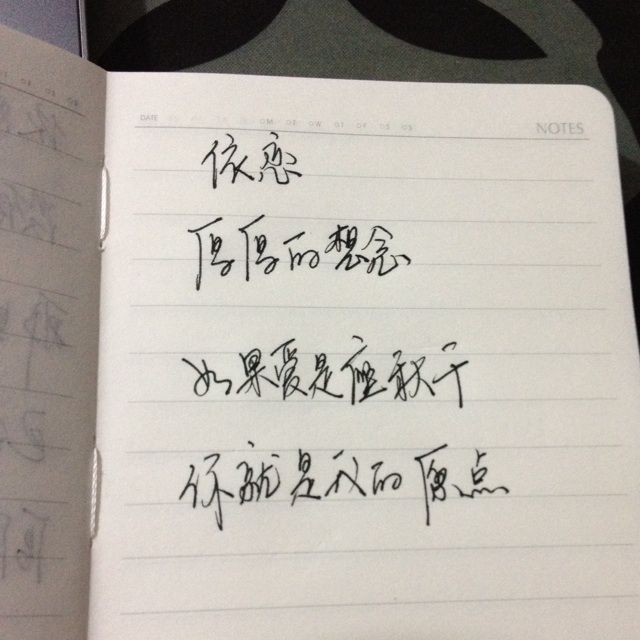 DATE
NOTES
依恋
厚厚的想念
如果爱是座秋千
你就是我的原点